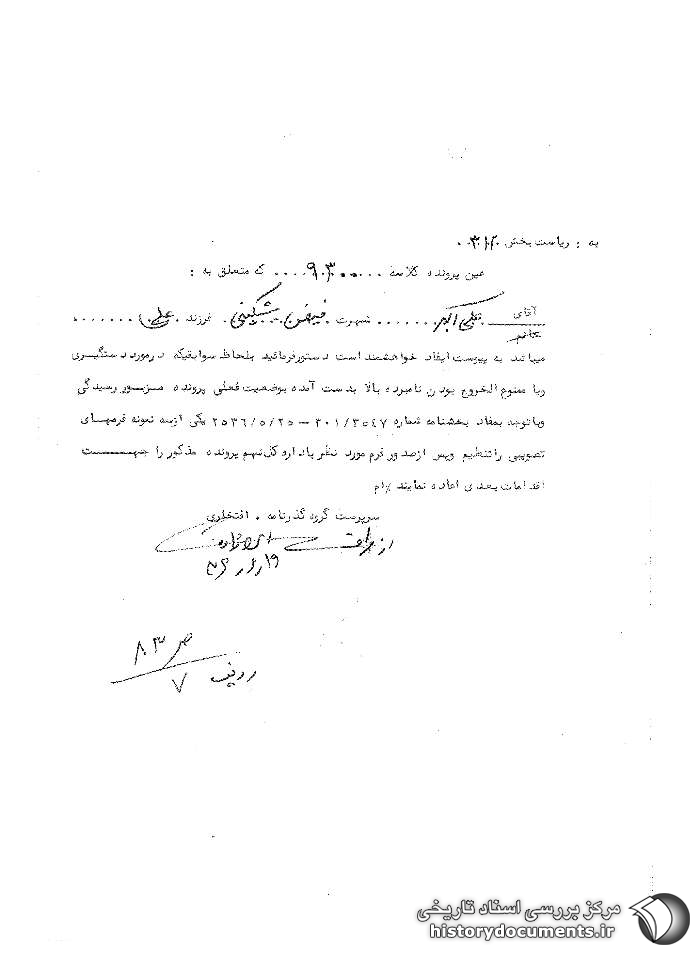 به : ریاست بخش ۳۱۲
عین پرونده کلاسه .....۹۰۳۰۰.... که متعلق به :
آقای
خانم
علی اکبر ....... شهرت فیض مشکینی فرزند علی ........
میباشد به پیوست ایفاد خواهشمند است دستور فرمائید بلحاظ سوابقیکه در مورد دستگیری
ویا ممنوع الخروج بودن نامبرده بالا بدست آمده بوضعیت فعلی پرونده مزبور رسیدگی
وباتوجه بمفاد بخشنامه شماره ۳۰۱/۳۵۴۷ – ۲۵۳۶/۵/۲۵ یکی ازسه نمونه فرمهای
تصویبی را تنظیم وپس ازصدور فرم مورد نظر باداره کل نهم پرونده مذکور را جهت
اقدامات بعدی اعاده نمایند /م
سرپرست گروه گذرنامه . افتخاری
از طرف
ص ۸۳
ردیف ۷
مرکز بررسی اسناد تاریخی
historydocuments.ir